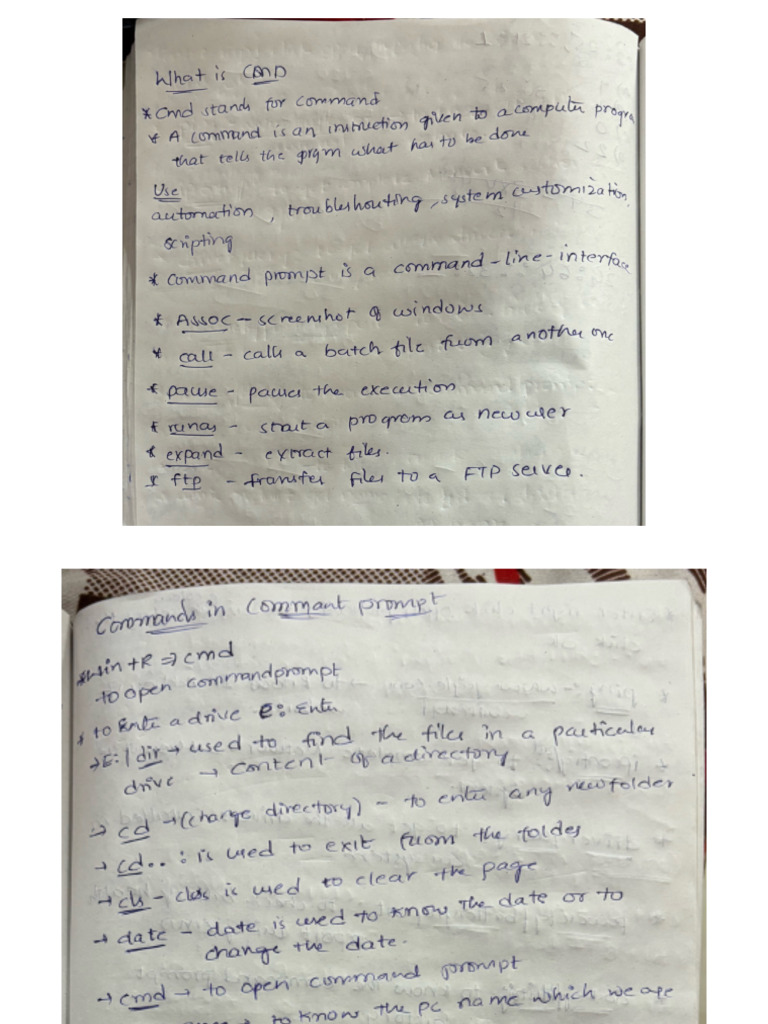 What is CMD
* Cmd stands for command
* A command is an instruction given to a computer progra
that tells the prgm what has to be done
Use
automation, troubleshouting, system customization,
scripting
* Command prompt is a command-line-interface
* Assoc - screenshot of windows
* call - calls a batch file from another one
* pause - pauses the execution
* runas - start a program as new user
* expand - extract files.
* ftp - transfer files to a FTP server.
Commands in Commant prompt
* win + R => cmd
to open commandprompt
* to Enter a drive e: Enter
→ E:| dir → used to find the files in a particular
drive → content of a directory
→ cd → (change directory) - to enter any new folder
→ cd.. : is used to exit from the folder
→ cls - cls is used to clear the page
→ date - date is used to know the date or to
change the date.
→ cmd → to open command prompt
→ to know the pc name which we are